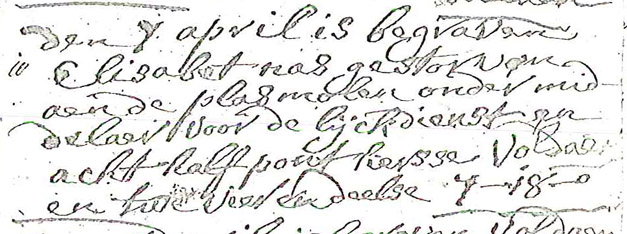 den 7 april is begraven
Elisabet nas gestorven
aen de plasmolen onder mid
delaer voor de lijckdienst en
acht half pont kersse Voldaen
en twe vierendeelse 7-18-0